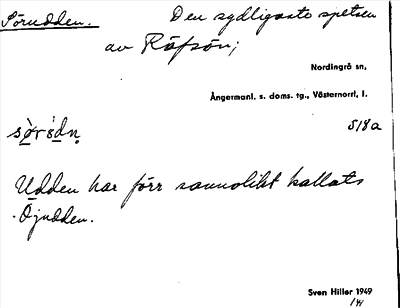 Sörudden. Den sydligaste spetsen
av Räfsön;
Nordingrå sn,
Ångermanl. s. doms. tg., Västernorrl. l.
518a
Udden har förr sannolikt kallats
Öjudden.
Sven Hiller 1949